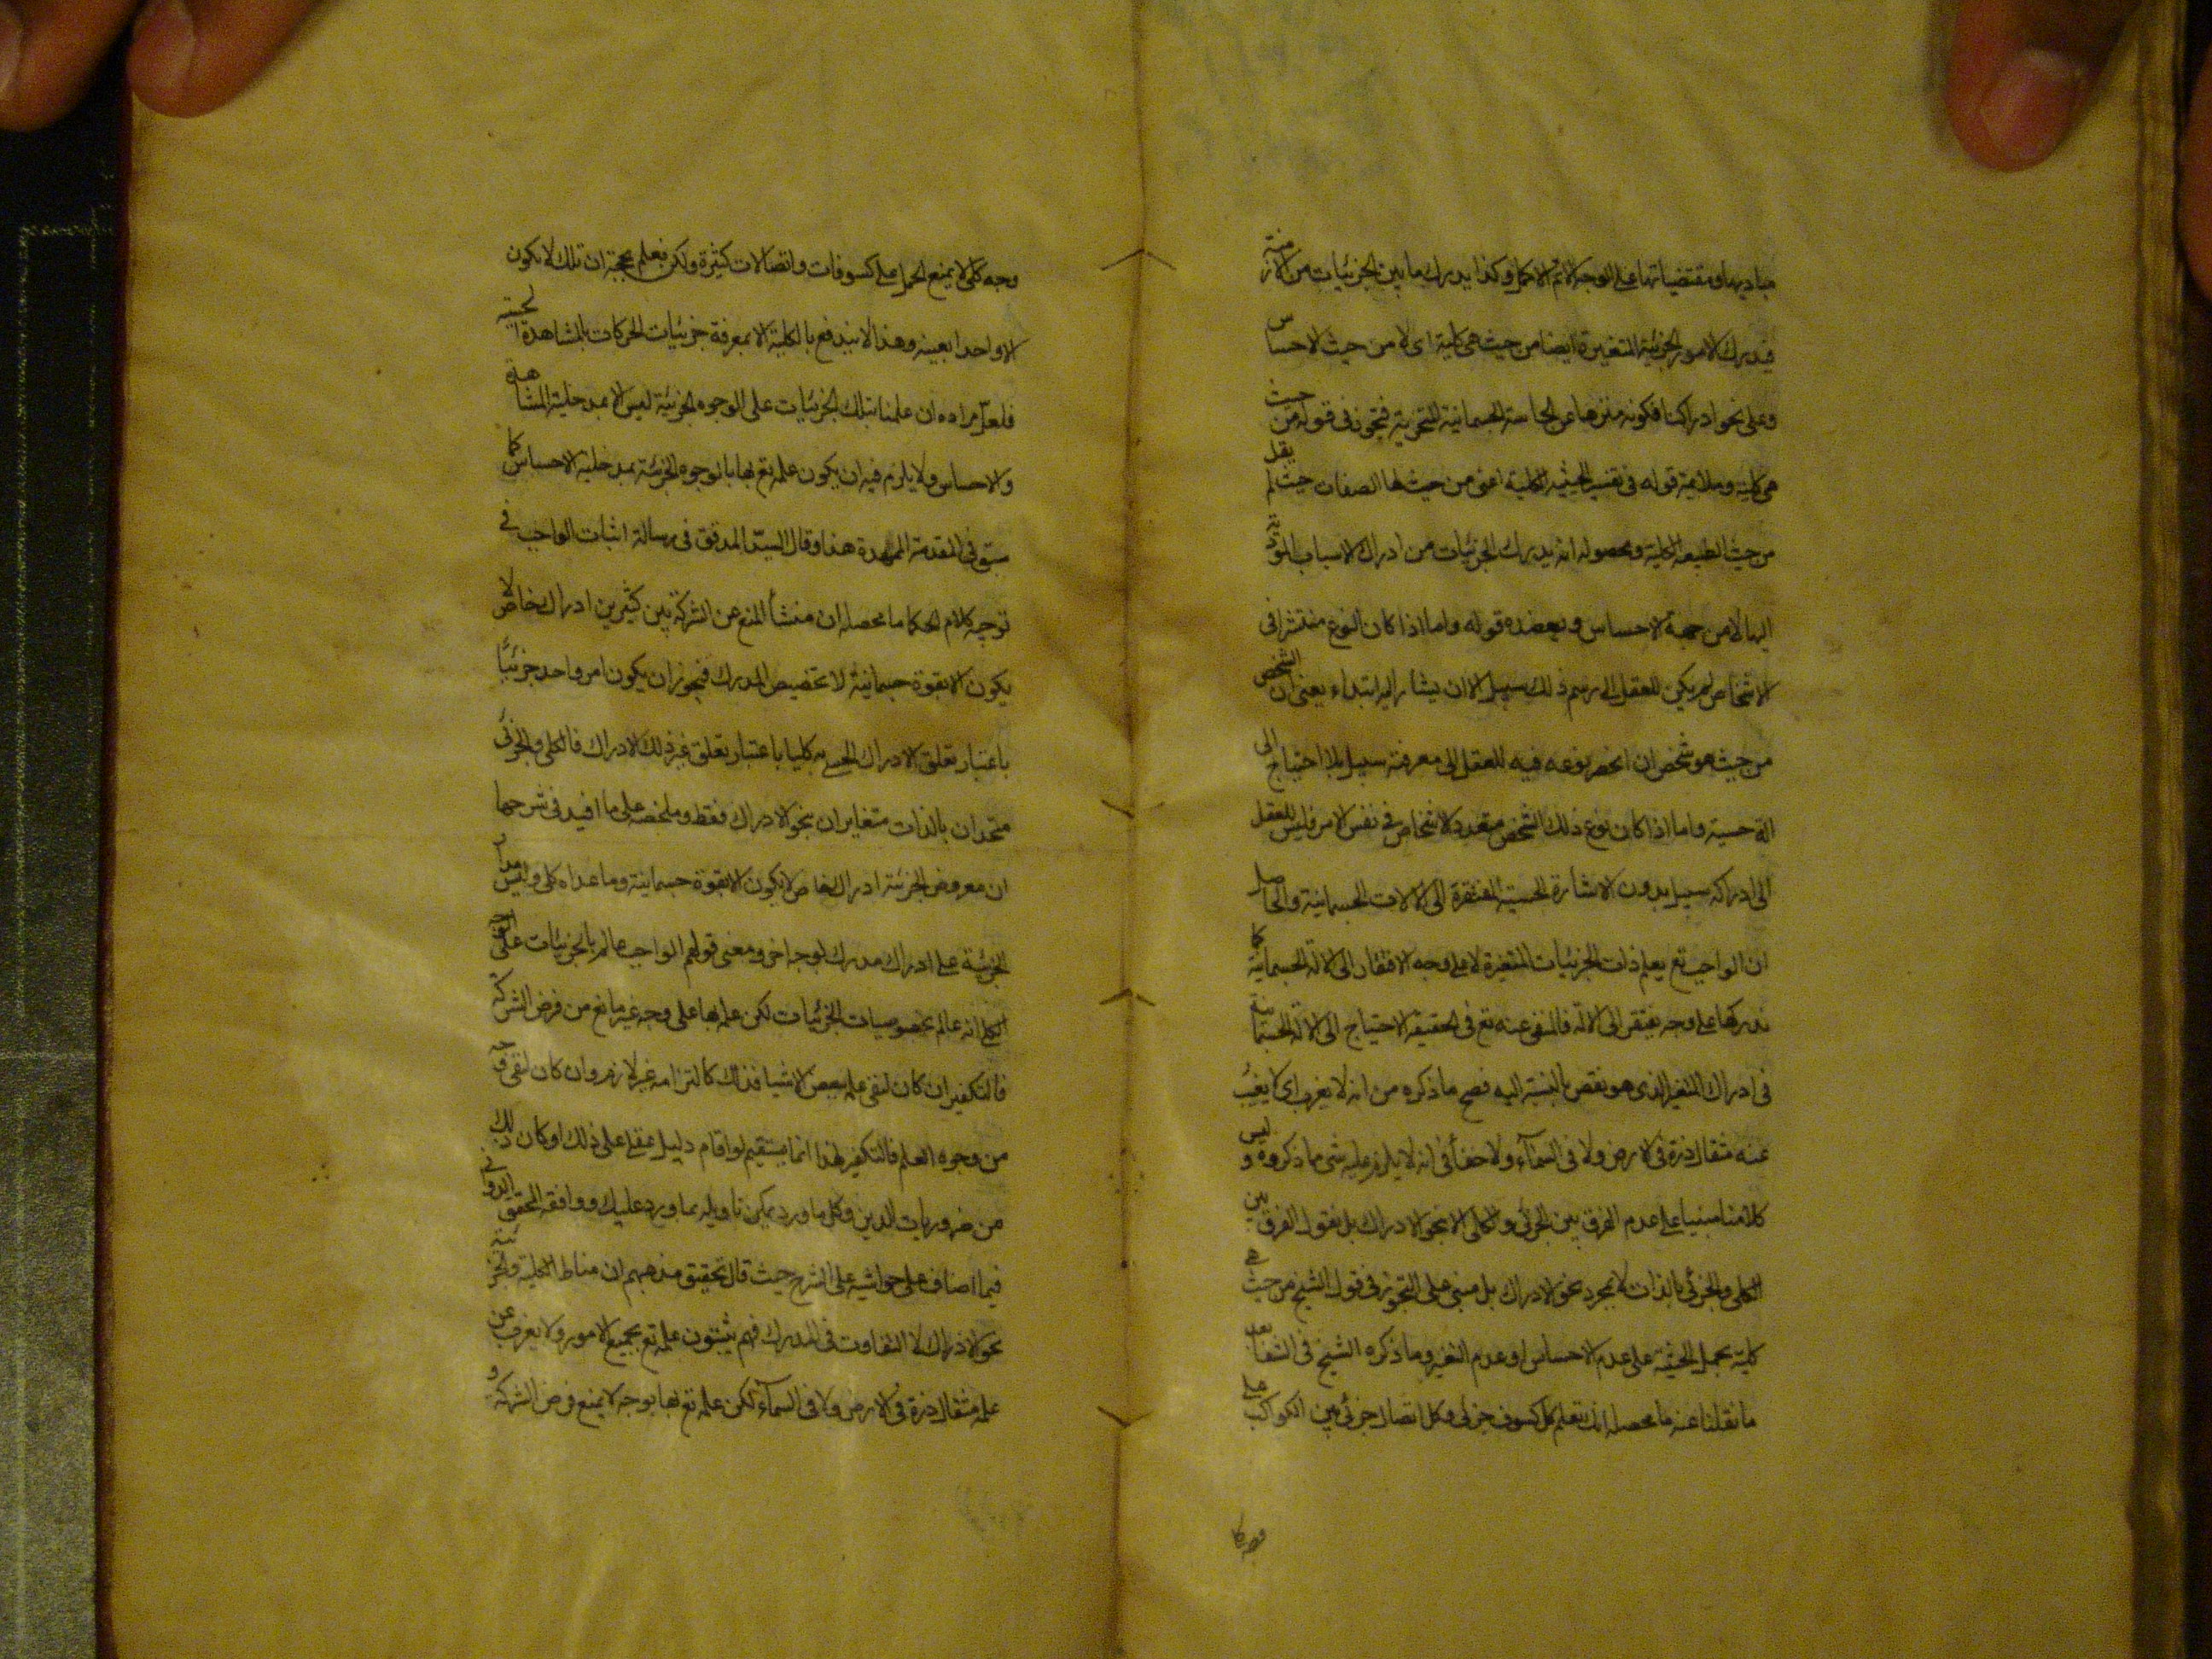 مباديها ومقتضياتها على الوجه الاتم الاكمل وكذا يدرك ما بين الجزئيات من الازمنة
فيدرك الامور الجزئية المتغيرة ايضا من حيث هي كلية اى لا من حيث الاحساس
وعلى نحو ادراكنا فكونه منزها عن الحاسة الجسمانية المتجزية فتجوز فى قوله من حيث
هى كلية وملائمة قوله فى تفسير الحيثية الكلية اعنى من حيث لها الصفات حيث لم يقل
من حيث الطبيعة الكلية ومحصوله انه يدرك الجزئيات من ادراك الاسباب المؤدية
اليها لا من جهة الاحساس ويعضده قوله واما اذا كان النوع منتشرا فى
الاشخاص لم يكن للعقل الى رسم ذلك سبيل الا ان يشار اليه ابتداء يعنى ان الشخص
من حيث هو شخص ان انحصر نوعه فيه للعقل الى معرفته سبيل بلا احتياج الى
الة حسية واما اذا كان نوع ذلك الشخص متعدد الاشخاص فى نفس الامر فليس للعقل
الى ادراكه سبيل بدون الاشارة الحسية المفتقرة الى الالات الجسمانية والحاصل
ان الواجب تع يعلم ذات الجزئيات المتغيرة لا على وجه الافتقار الى الالة الجسمانية كما
ندركها على وجه يفتقر الى الالة فالمنفى عنه تع فى الحقيقة الاحتياج الى الالة الجسمانية
فى ادراك المتغير الذى هو نقص بالنسبة اليه فصح ما ذكره من انه لا يعزب اى لا يغيب
عنه مثقال ذرة فى الارض ولا فى السماء ولا خفأ فى انه لا يلزم عليه شئ مما ذكروه وليس
كلامنا مبنيا على عدم الفرق بين الجزئى والكلى الا بنحو الادراك بل نقول الفرق بين
الكلى والجزئى بالذات لا بمجرد نحو الادراك بل مبنى على التجوز فى قول الشيخ من حيث هى
كلية بحمل الحيثية على عدم الاحساس او عدم التغير وما ذكره الشيخ فى الشفا بعد
ما نقلنا عنه ما محصله انك تعلم كل كسوف جزئى وكل اتصال جزئى بين الكواكب على
وجه كلى
وجه كلى لا يمنع الحمل على كسوفات واتصالات كثيرة ولكن نعلم بحجة ان تلك لا يكون
الا واحدا بعينه وهذا لا يندفع بالكلية الا بمعرفة جزئيات الحركات بالمشاهدة الحسية
فلعل مراده ان علمنا بتلك الجزئيات على الوجوه الجزئية ليس الا بمدخلية المشاهدة
والاحساس ولا يلزم فيه ان يكون علمه تع بها بالوجوه الجزئية بمدخلية الاحساس كما
سبق فى المقدمة الممهدة هذا وقال السيد المدقق فى رسالة اثبات الواجب فى
توجيه كلام الحكما ما محصله ان منشأ المنع عن الشركة بين كثيرين ادراك خاص لا
يكون الا بقوة جسمانية لا تخصيص المدرك فيجوز ان يكون امر واحد جزئيا
باعتبار تعلق الادراك الحسى به كليا باعتبار تعلق غير ذلك الادراك فالكلى والجزئى
متحدان بالذات متغايران بنحو الادراك فقط وملخصه على ما افيد فى شرحها
ان معروض الجزئية ادراك خاص لا يكون الا بقوة جسمانية وما عداه كلى وليس مدار
الجزئية على ادراك مدرك لوجه اخر ومعنى قولهم الواجب عالم بالجزئيات على الوجه
الكلى انه عالم بخصوصيات الجزئيات لكن علمه بها على وجه غير مانع من فرض الشركة
فالتكفير ان كان لنفى علمه ببعض الاشيا فذاك كالتزامه غير لازم وان كان لنفى وجه
من وجوه العلم فالتكفير لهذا انما يستقيم لو اقام دليل عقلى على ذلك او كان ذلك
من ضروريات الدين وكل ما ورد يمكن تاويله بما ورد عليك ووافقه المحقق الدوانى
فيما اضاف على حواشيه على الشرح حيث قال تحقيق مذهبهم ان مناط الكلية والجزئية
نحو الادراك لا التفاوت فى المدرك فهم يثبتون علمه تع بجميع الامور ولا يعزب عن
علمه مثقال ذرة فى الارض ولا فى السماء لكن علمه تع بها بوجه لا يمنع فرض الشركة و